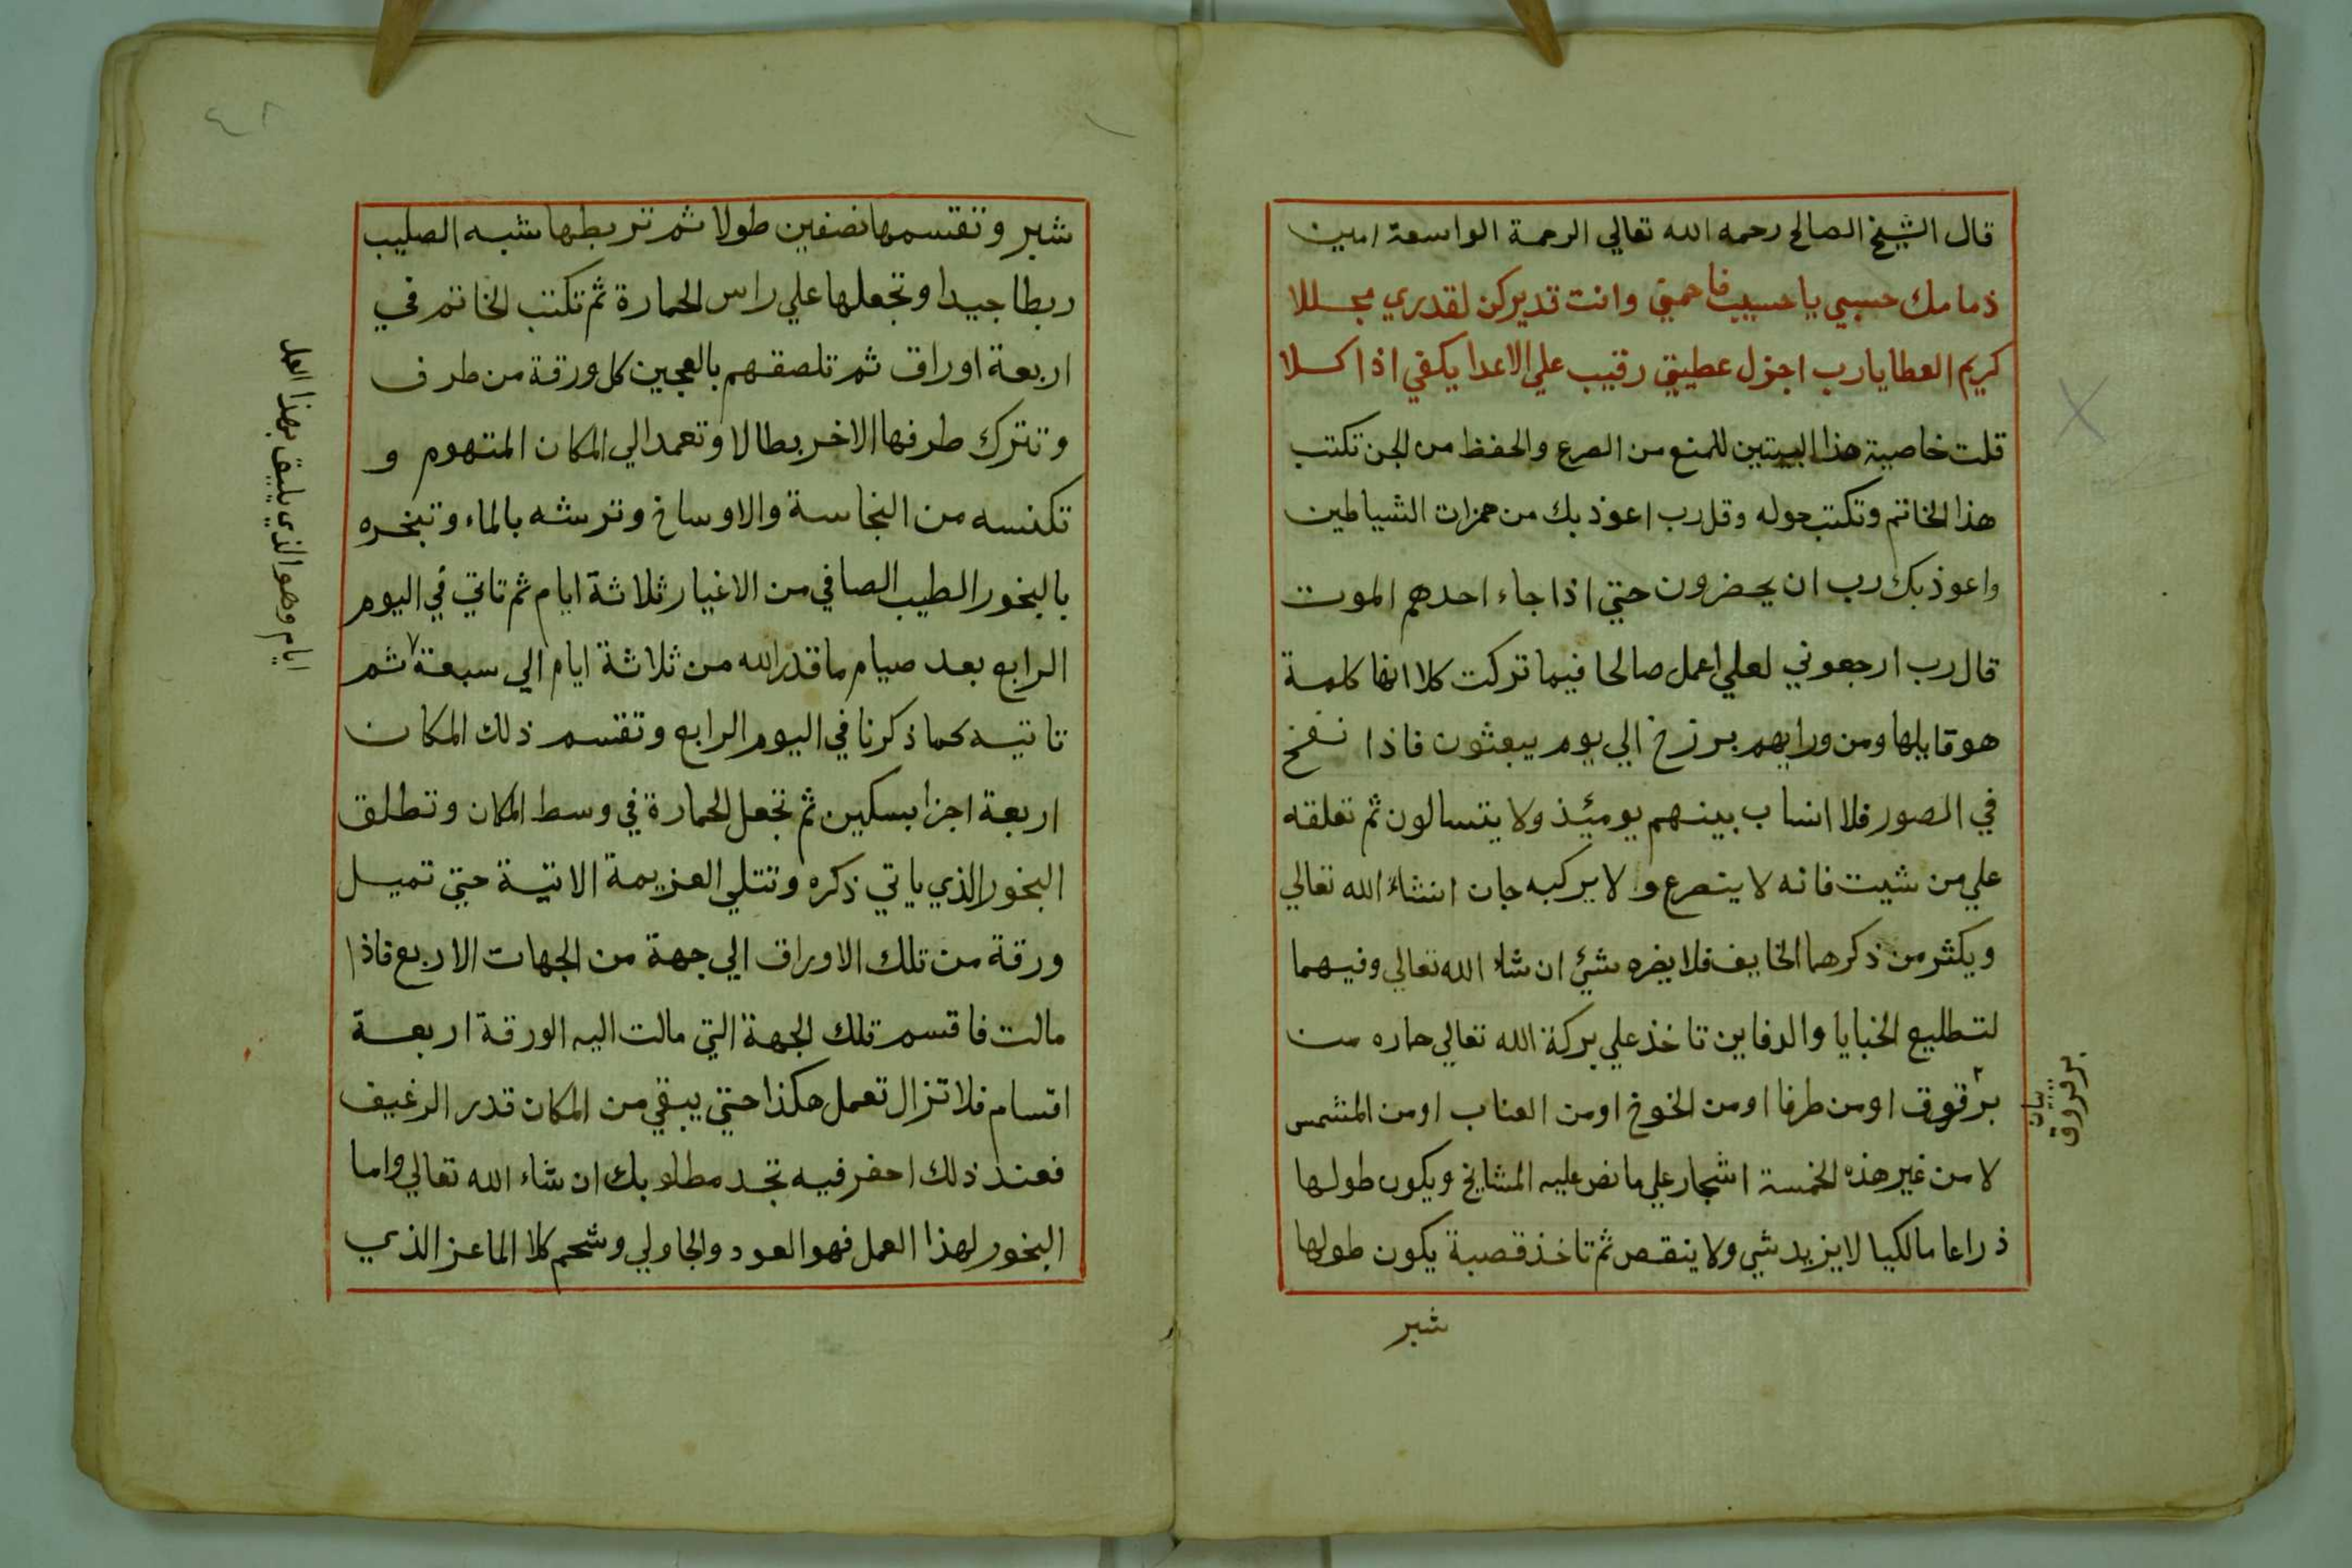 قال الشيخ الصالح رحمه الله تعالي الرحمة الواسعة امين
ذمامك حسبي يا حسيب فاحمني وانت تديركن لقدري مجللا
كريم العطايا رب اجزل عطيتي رقيب علي الاعدا يكفي اذا كلا
قلت خاصية هذا البيتين للمنع من الصرع والحفظ من الجن تكتب
هذا الخاتم وتكتب حوله وقل رب اعوذ بك من همزات الشياطين
واعوذ بك رب ان يحضرون حتي اذا جاء احدهم الموت
قال رب ارجعوني لعلي اعمل صالحا فيما تركت كلا انها كلمة
هو قايلها ومن ورايهم برزخ الي يوم يبعثون فاذا نفخ
في الصور فلا انساب بينهم يومئذ ولا يتسالون ثم تعلقه
علي من شيت فانه لا ينصرع ولا يركبه جان انشاء الله تعالي
ويكثر من ذكرهما الخايف فلا يضره شئ ان شاء الله تعالي وفيهما
لتطليع الخبايا والدفاين تاخذ علي بركة الله تعالي حماره من
برقوق او من طرفا او من الخوخ او من العناب او من المشمس
لا من غير هذه الخمسة اشجار علي ما نص عليه المشايخ ويكون طولها
ذراعا مالكيا لا يزيد شي ولا ينقص ثم تاخذ قصبة يكون طولها
شبر
برقوق
بيان
شبر وتقسمها نصفين طولا ثم تربطها شبه الصليب
ربطا جيدا وتجعلها علي راس الحمارة ثم تكتب الخاتم في
اربعة اوراق ثم تلصقهم بالعجين كل ورقة من طرف
وتترك طرفها الاخر بطالا وتعمد الي المكان المتهوم و
تكنسه من النجاسة والاوساخ وترشه بالماء وتبخره
بالبخور الطيب الصافي من الاغيار ثلاثة ايام ثم تاتي في اليوم
الرابع بعد صيام ما قدر الله من ثلاثة ايام الي سبعة ٧ ثم
تاتيه كما ذكرنا في اليوم الرابع وتقسم ذلك المكان
اربعة اجزا بسكين ثم تجعل الحمارة في وسط المكان وتطلق
البخور الذي ياتي ذكره وتتلي العزيمة الاتية حتي تميل
ورقة من تلك الاوراق الي جهة من الجهات الاربع فاذا
مالت فاقسم تلك الجهة التي مالت اليه الورقة اربعة
اقسام فلا تزال تعمل هكذا حتي يبقي من المكان قدر الرغيف
فعند ذلك احفر فيه تجد مطلوبك ان شاء الله تعالي واما
البخور لهذا العمل فهو العود والجاولي وشحم كلا الماعز الذي
ايام وهو الذي يليق بهذا العمل